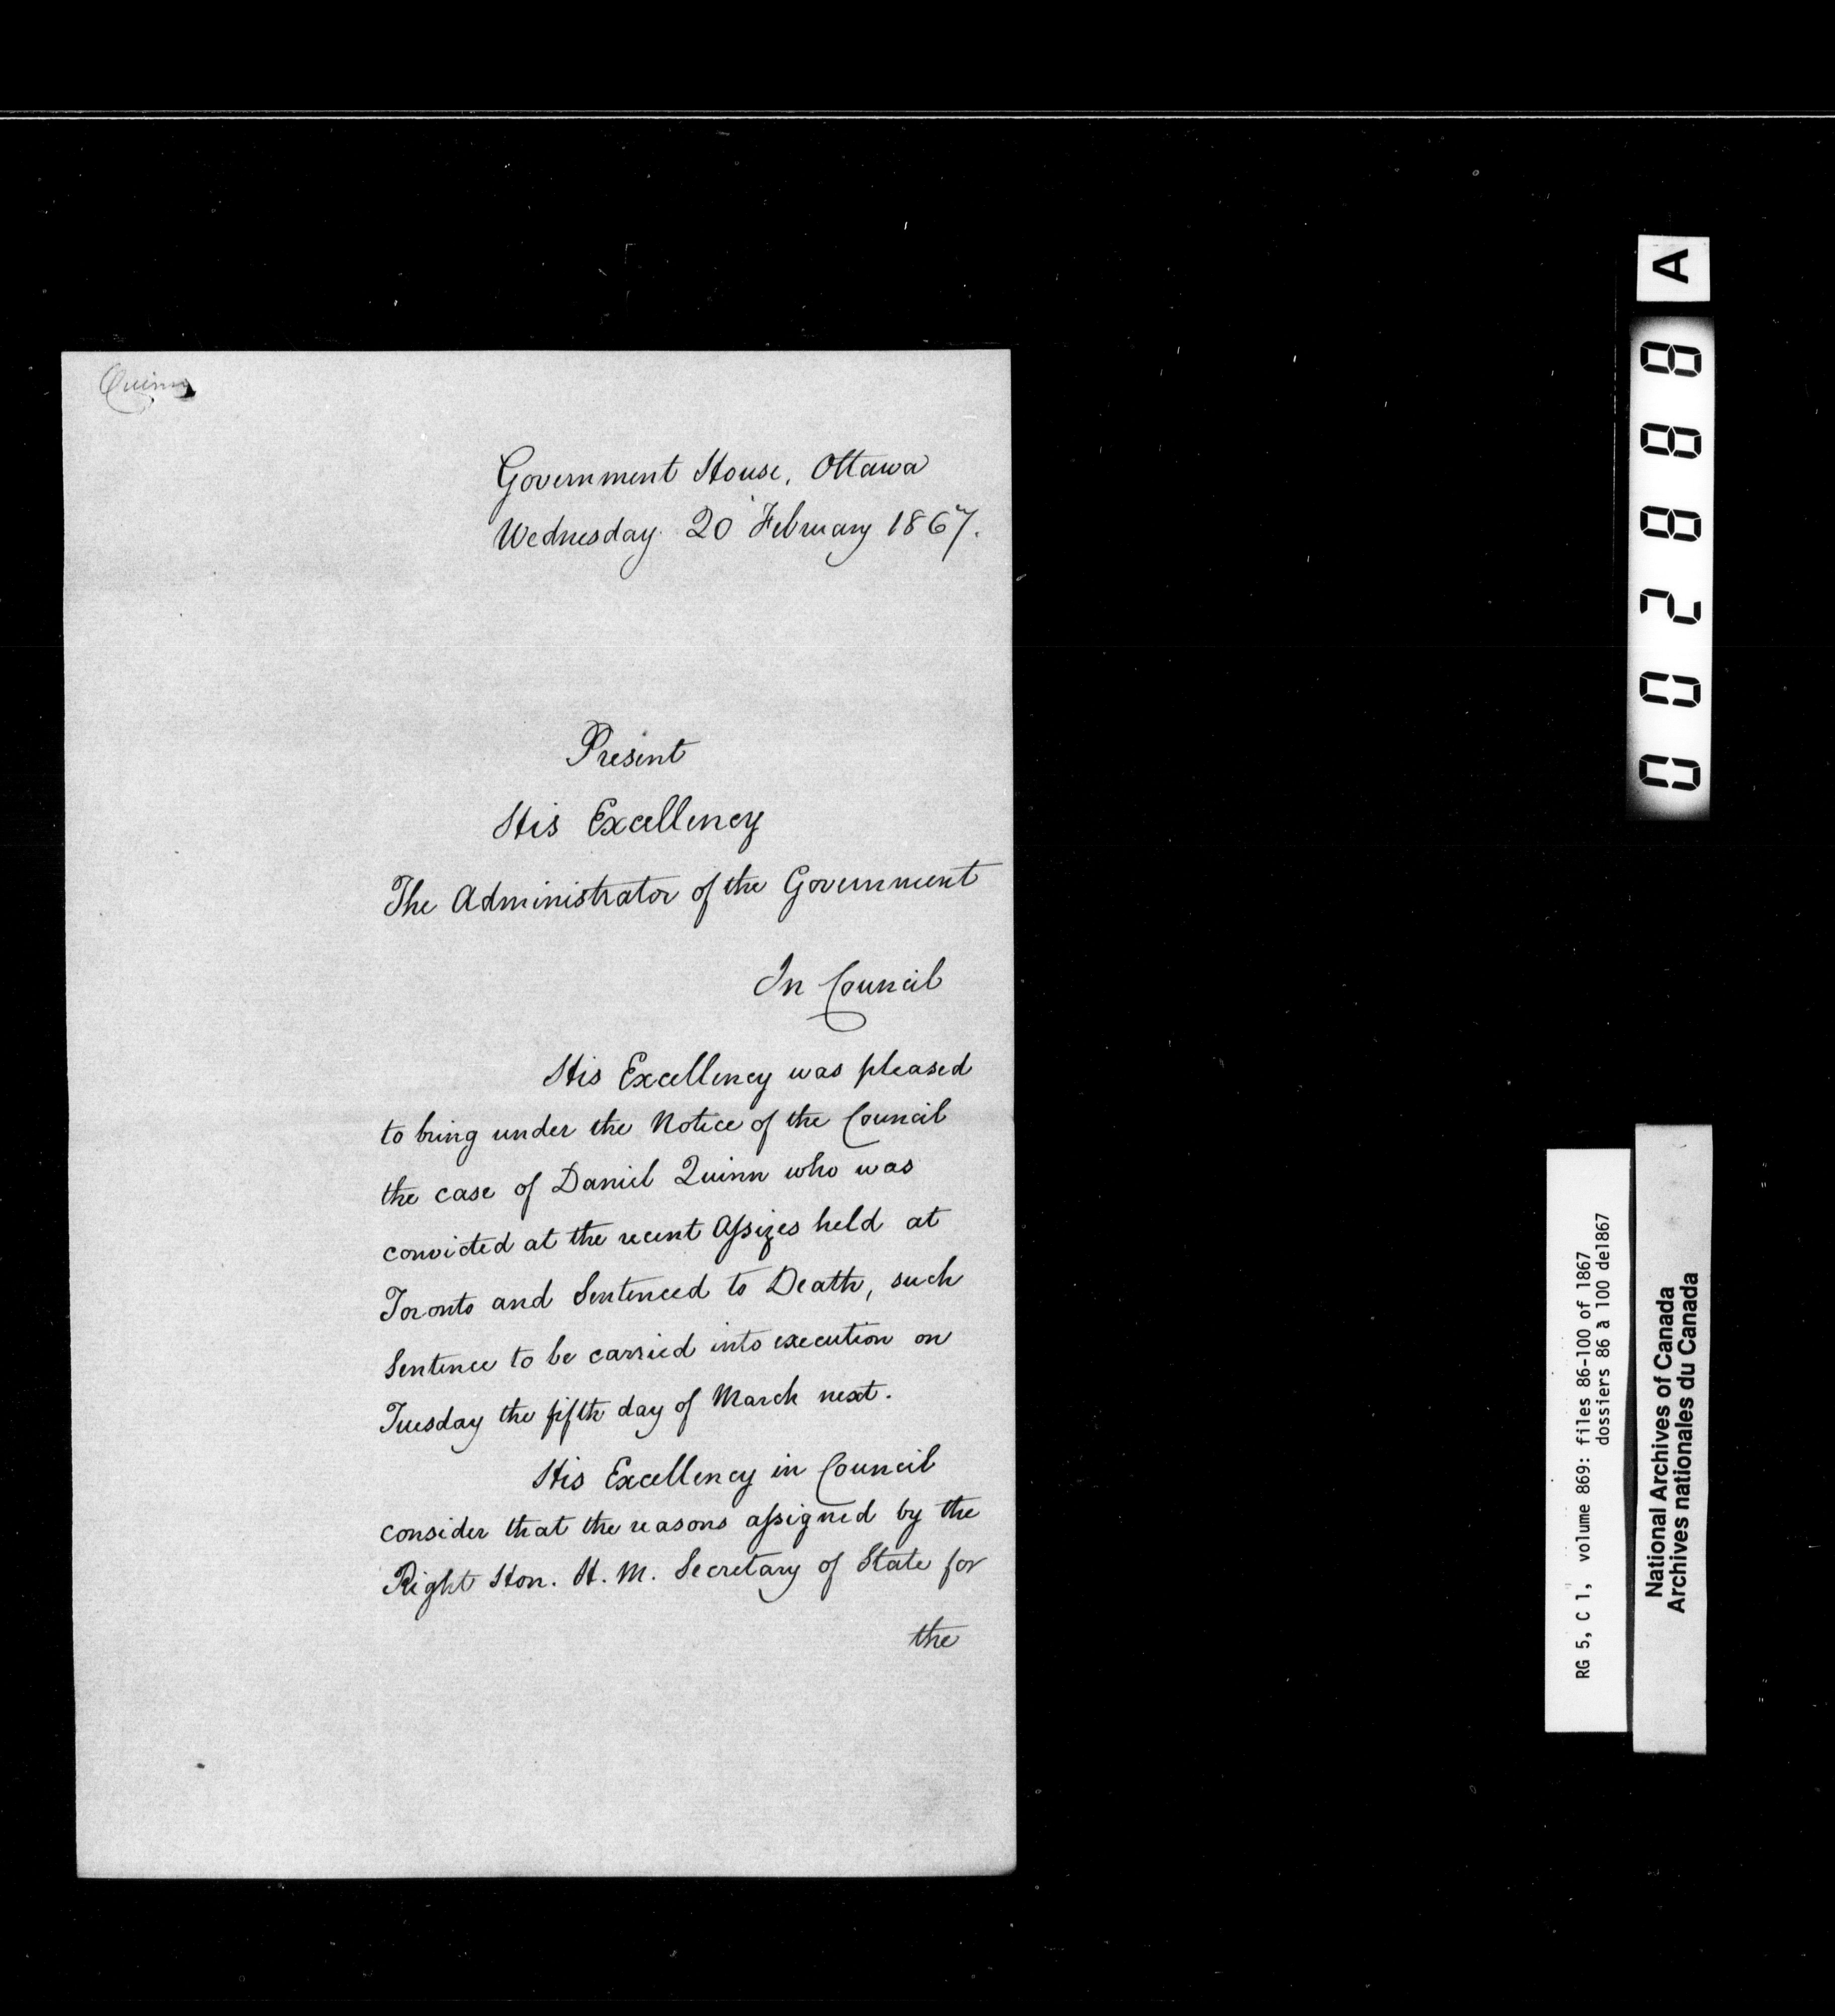 Quinn
Government House, Ottawa
Wednesday 20 February 1867.
Present
His Excellency
The Administrator of the Government
In Council
His Excellency was pleased
to bring under the Notice of the Council
the case of Daniel Quinn who was
convicted at the recent Assizes held at
Toronto and Sentenced to Death, such
Sentence to be carried into execution on
Tuesday the fifth day of March next.
His Excellency in Council
consider that the reasons assigned by the
Right Hon. H. M. Secretary of State for
the
A
002888
RG 5, C 1, volume 869: files 86-100 of 1867
dossiers 86 à 100 de1867
National Archives of Canada
Archives nationales du Canada